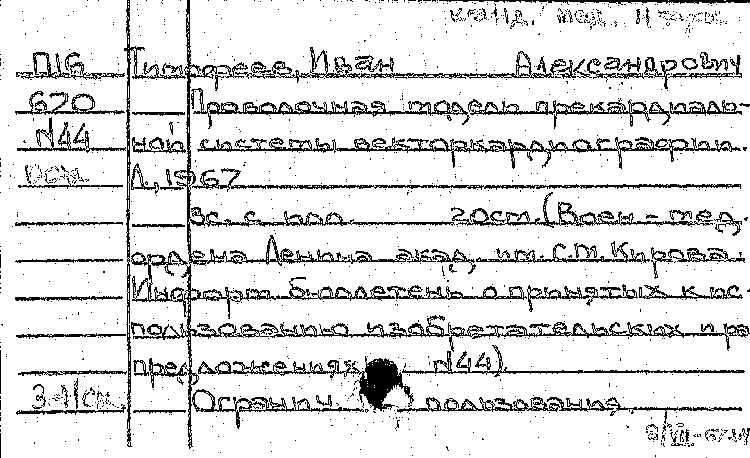 канд. мед. наук
П16 Тимофеев, Иван Александрович
620 Проволочная модель прекардиаль-
N44 ной системы векторкардиографии.
Л., 1967
3с. с илл. 20см. (Воен-мед.
ордена Ленина акад. им. С.М. Кирова.
Информ. бюллетень о принятых к ис-
пользованию изобретательских и ра
предложениях N44).
Огранич. пользования